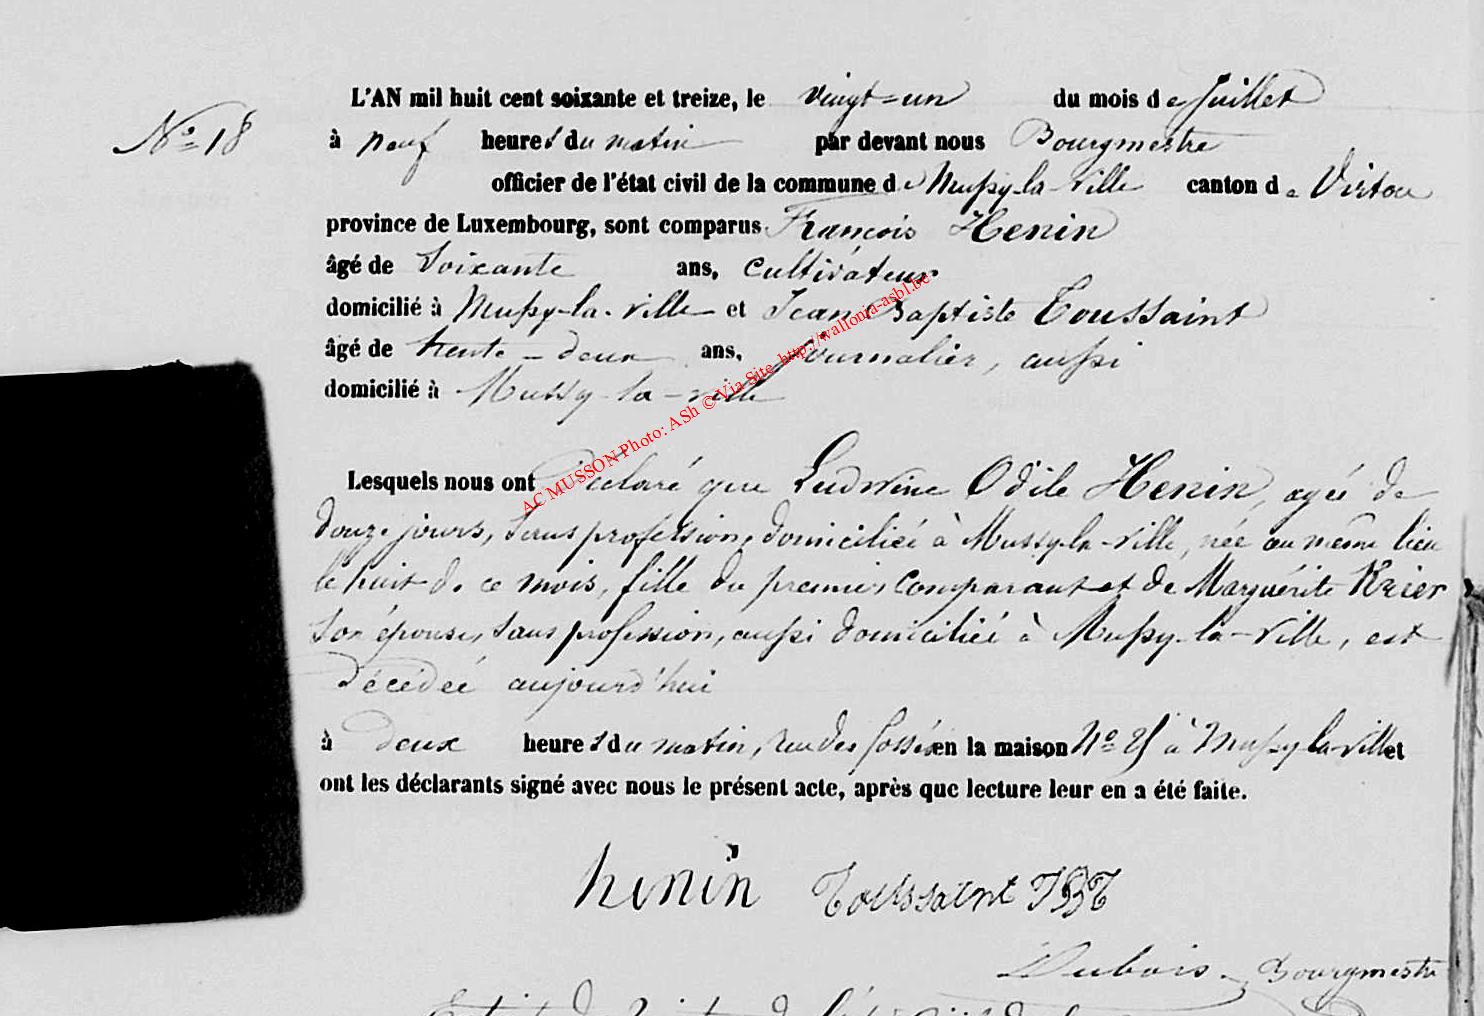 N° 18
L'AN mil huit cent soixante et treize, le vingt-un du mois de Juillet
à neuf heures du matin par devant nous Bourgmestre
officier de l'état civil de la commune de Mussy-la-Ville canton de Virton
province de Luxembourg, sont comparus François Henin
âgé de Soixante ans, Cultivateur
domicilié à Mussy-la-Ville et Jean Baptiste Toussaint
âgé de trente-deux ans, Journalier, aussi
domicilié à Mussy-la-Ville
AC MUSSON Photo: ASh © Via Site http://wallonia-asbl.be
Lesquels nous ont Déclaré que Ludwine Odile Henin, agée de
douze jours, Sans profession, domiciliée à Mussy-la-Ville, née au même lieu
le huit de ce mois, fille du premier Comparant et de Marguérite Kaier
son épouse, sans profession, aussi domiciliée à Mussy-la-Ville, est
Décédée aujourd'hui
à deux heures du matin, rue des fossés en la maison N° à Mussy-la-Ville et
ont les déclarants signé avec nous le présent acte, après que lecture leur en a été faite.
henin Toussaint JBT
Dubois Bourgmestre